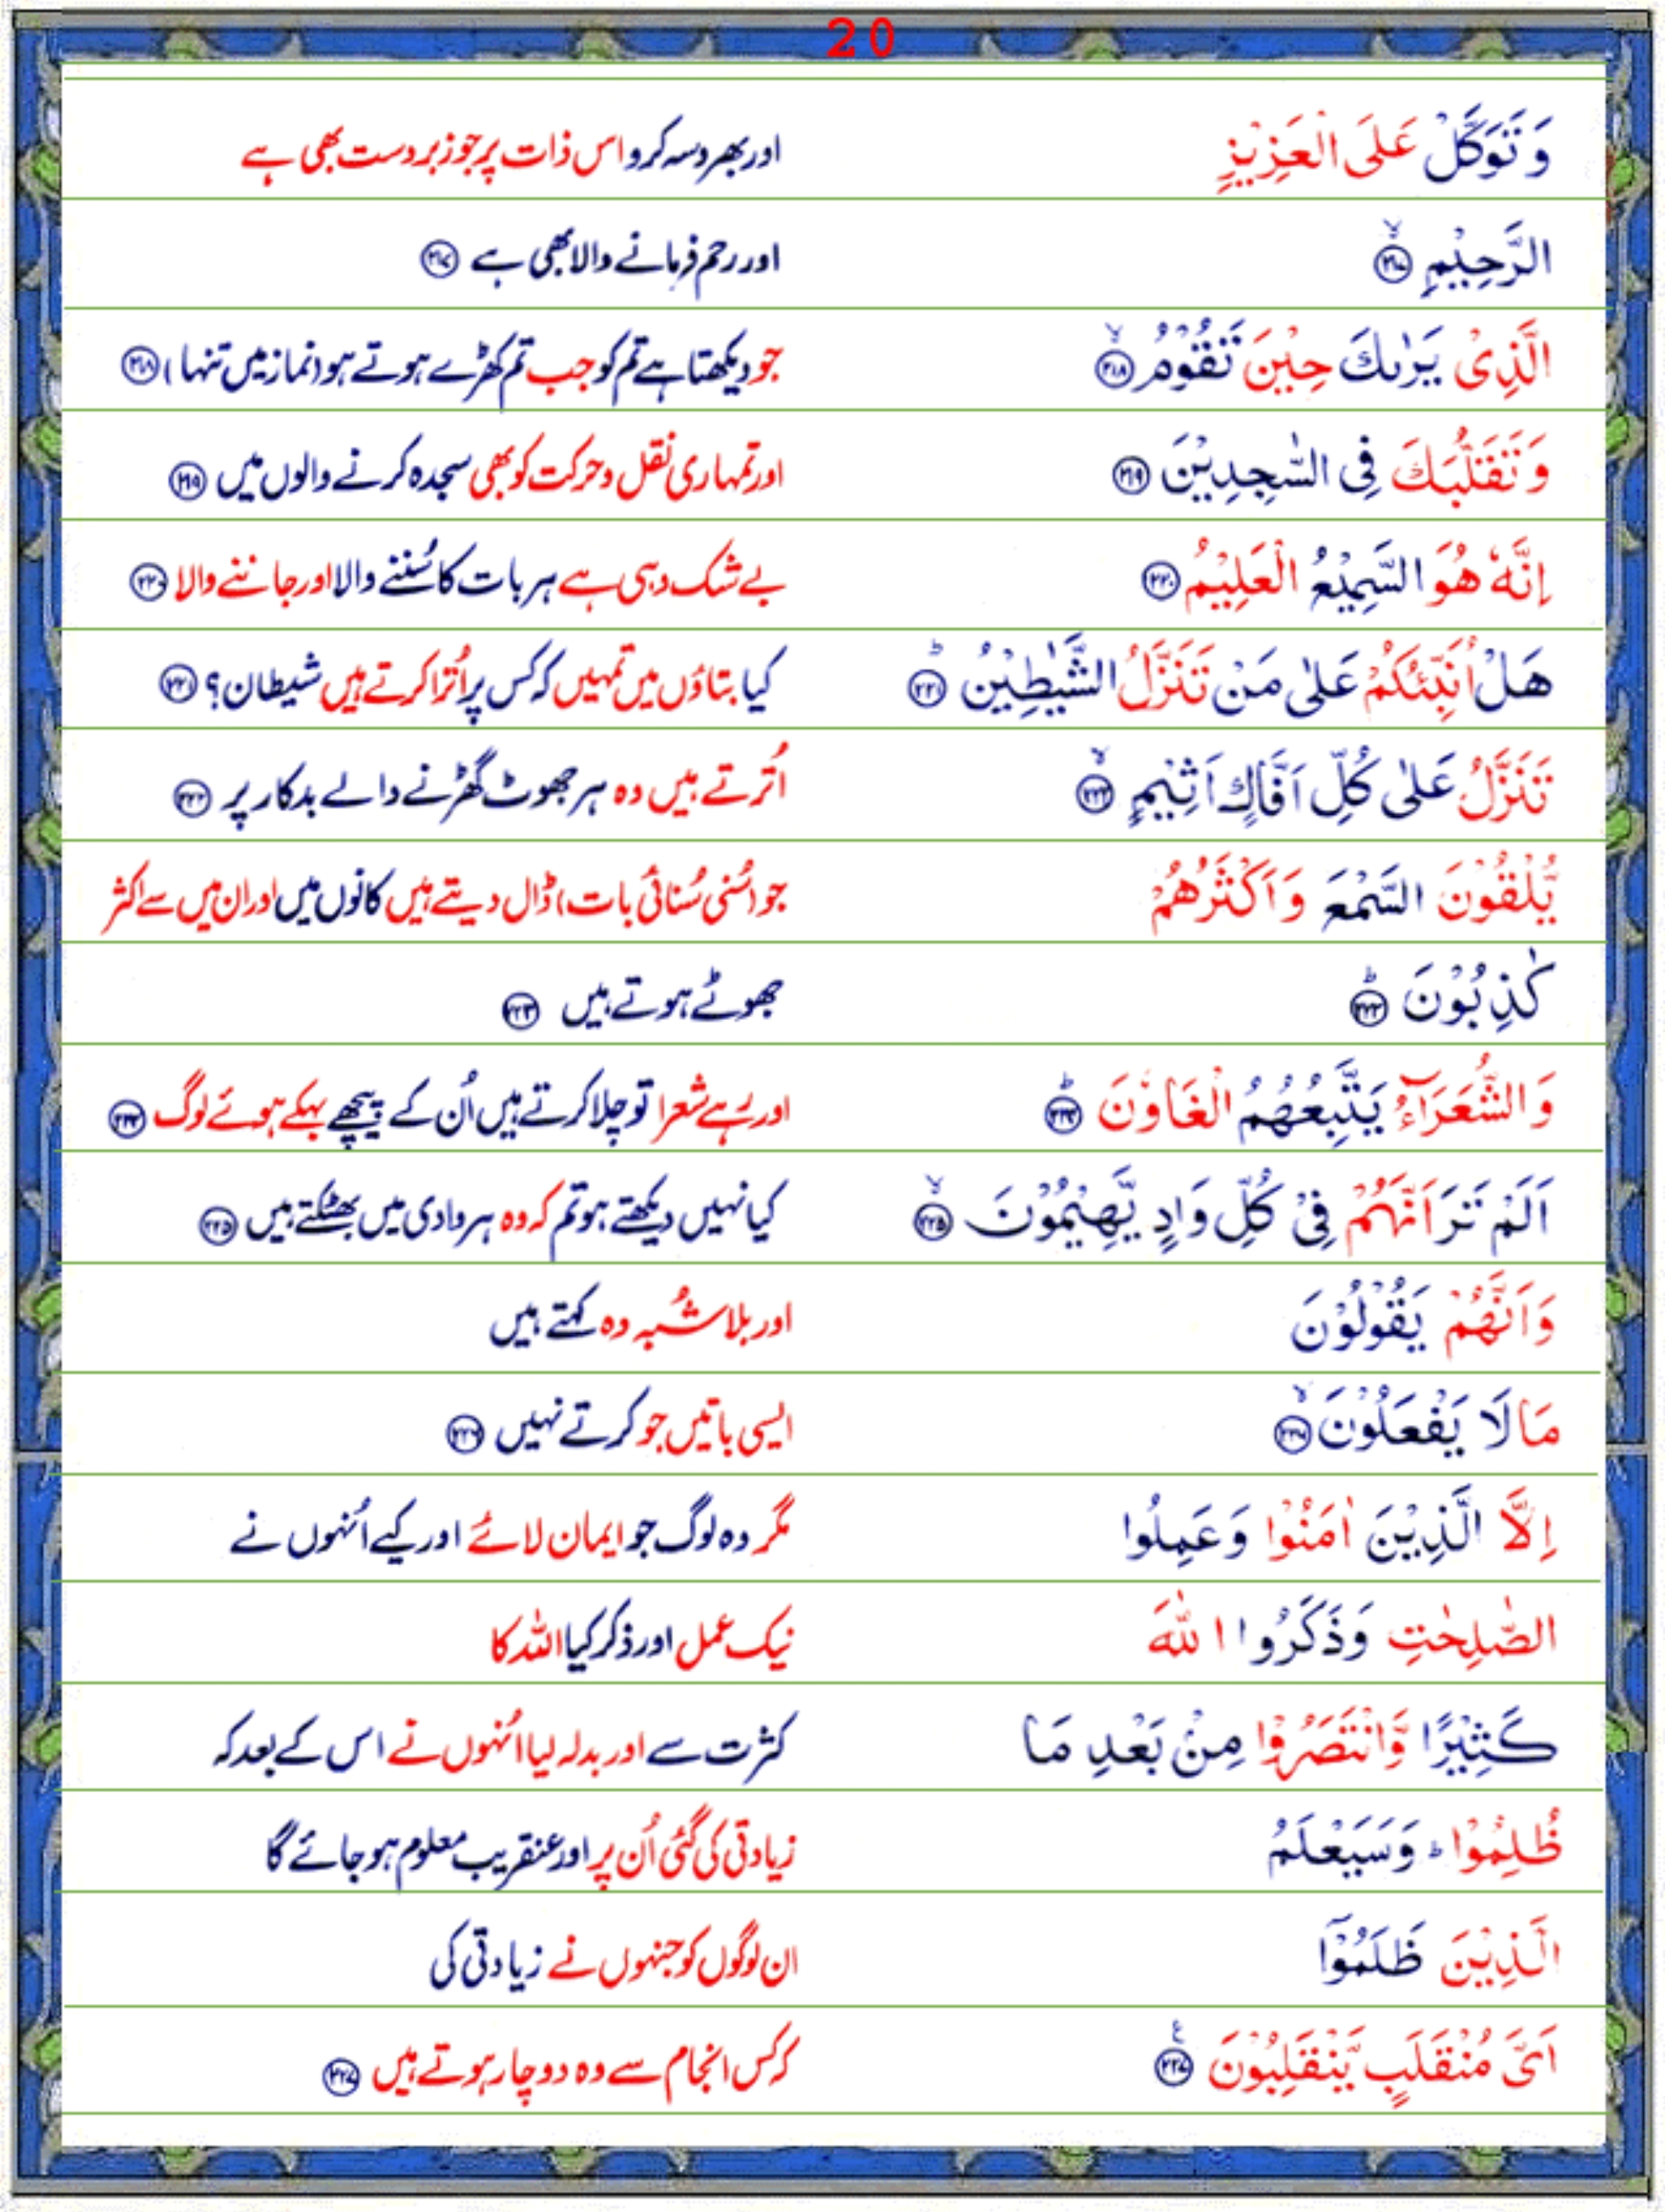 20
وَتَوَكَّلْ عَلَى الْعَزِيْزِ اور بھروسہ کرو اس ذات پر جو زبردست بھی ہے
الرَّحِيْمِ ۙ﴿۲۱۷﴾ اور رحم فرمانے والا بھی ہے ﴿۲۱۷﴾
الَّذِىْ يَرٰٮكَ حِيْنَ تَقُوْمُ ۙ﴿۲۱۸﴾ جو دیکھتا ہے تم کو جب تم کھڑے ہوتے ہو (نماز میں تنہا) ﴿۲۱۸﴾
وَتَقَلُّبَكَ فِى السّٰجِدِيْنَ ﴿۲۱۹﴾ اور تمہاری نقل و حرکت کو بھی سجدہ کرنے والوں میں ﴿۲۱۹﴾
اِنَّهٗ هُوَ السَّمِيْعُ الْعَلِيْمُ ﴿۲۲۰﴾ بے شک وہی ہے ہر بات کا سُننے والا اور جاننے والا ﴿۲۲۰﴾
هَلْ اُنَبِّئُكُمْ عَلٰى مَنْ تَنَزَّلُ الشَّيٰطِيْنُ ؕ﴿۲۲۱﴾ کیا بتاؤں میں تمہیں کہ کس پر اُترا کرتے ہیں شیطان؟ ﴿۲۲۱﴾
تَنَزَّلُ عَلٰى كُلِّ اَفَّاكٍ اَثِيْمٍ ۙ﴿۲۲۲﴾ اُترتے ہیں وہ ہر جھوٹ گھڑنے والے بدکار پر ﴿۲۲۲﴾
يُّلْقُوْنَ السَّمْعَ وَاَكْثَرُهُمْ جو (سُنی سُنائی بات) ڈال دیتے ہیں کانوں میں اور ان میں سے اکثر
كٰذِبُوْنَ ؕ﴿۲۲۳﴾ جھوٹے ہوتے ہیں ﴿۲۲۳﴾
وَالشُّعَرَآءُ يَتَّبِعُهُمُ الْغَاوٗنَ ؕ﴿۲۲۴﴾ اور رہے شعرا تو چلا کرتے ہیں اُن کے پیچھے بہکے ہوئے لوگ ﴿۲۲۴﴾
اَلَمْ تَرَ اَنَّهُمْ فِىْ كُلِّ وَادٍ يَّهِيْمُوْنَ ۙ﴿۲۲۵﴾ کیا نہیں دیکھتے ہو تم کہ وہ ہر وادی میں بھٹکتے ہیں ﴿۲۲۵﴾
وَاَنَّهُمْ يَقُوْلُوْنَ اور بلاشُبہ وہ کہتے ہیں
مَا لَا يَفْعَلُوْنَ ۙ﴿۲۲۶﴾ ایسی باتیں جو کرتے نہیں ﴿۲۲۶﴾
اِلَّا الَّذِيْنَ اٰمَنُوْا وَعَمِلُوا مگر وہ لوگ جو ایمان لائے اور کیے اُنہوں نے
الصّٰلِحٰتِ وَذَكَرُوا اللّٰهَ نیک عمل اور ذکر کیا اللہ کا
كَثِيْرًا وَّانْتَصَرُوْا مِنْۢ بَعْدِ مَا کثرت سے اور بدلہ لیا اُنہوں نے اس کے بعد کہ
ظُلِمُوْا ؕ وَسَيَعْلَمُ زیادتی کی گئی اُن پر اور عنقریب معلوم ہو جائے گا
الَّذِيْنَ ظَلَمُوْۤا ان لوگوں کو جنہوں نے زیادتی کی
اَىَّ مُنْقَلَبٍ يَّنْقَلِبُوْنَ ﴿۲۲۷﴾ ع کہ کس انجام سے وہ دوچار ہوتے ہیں ﴿۲۲۷﴾